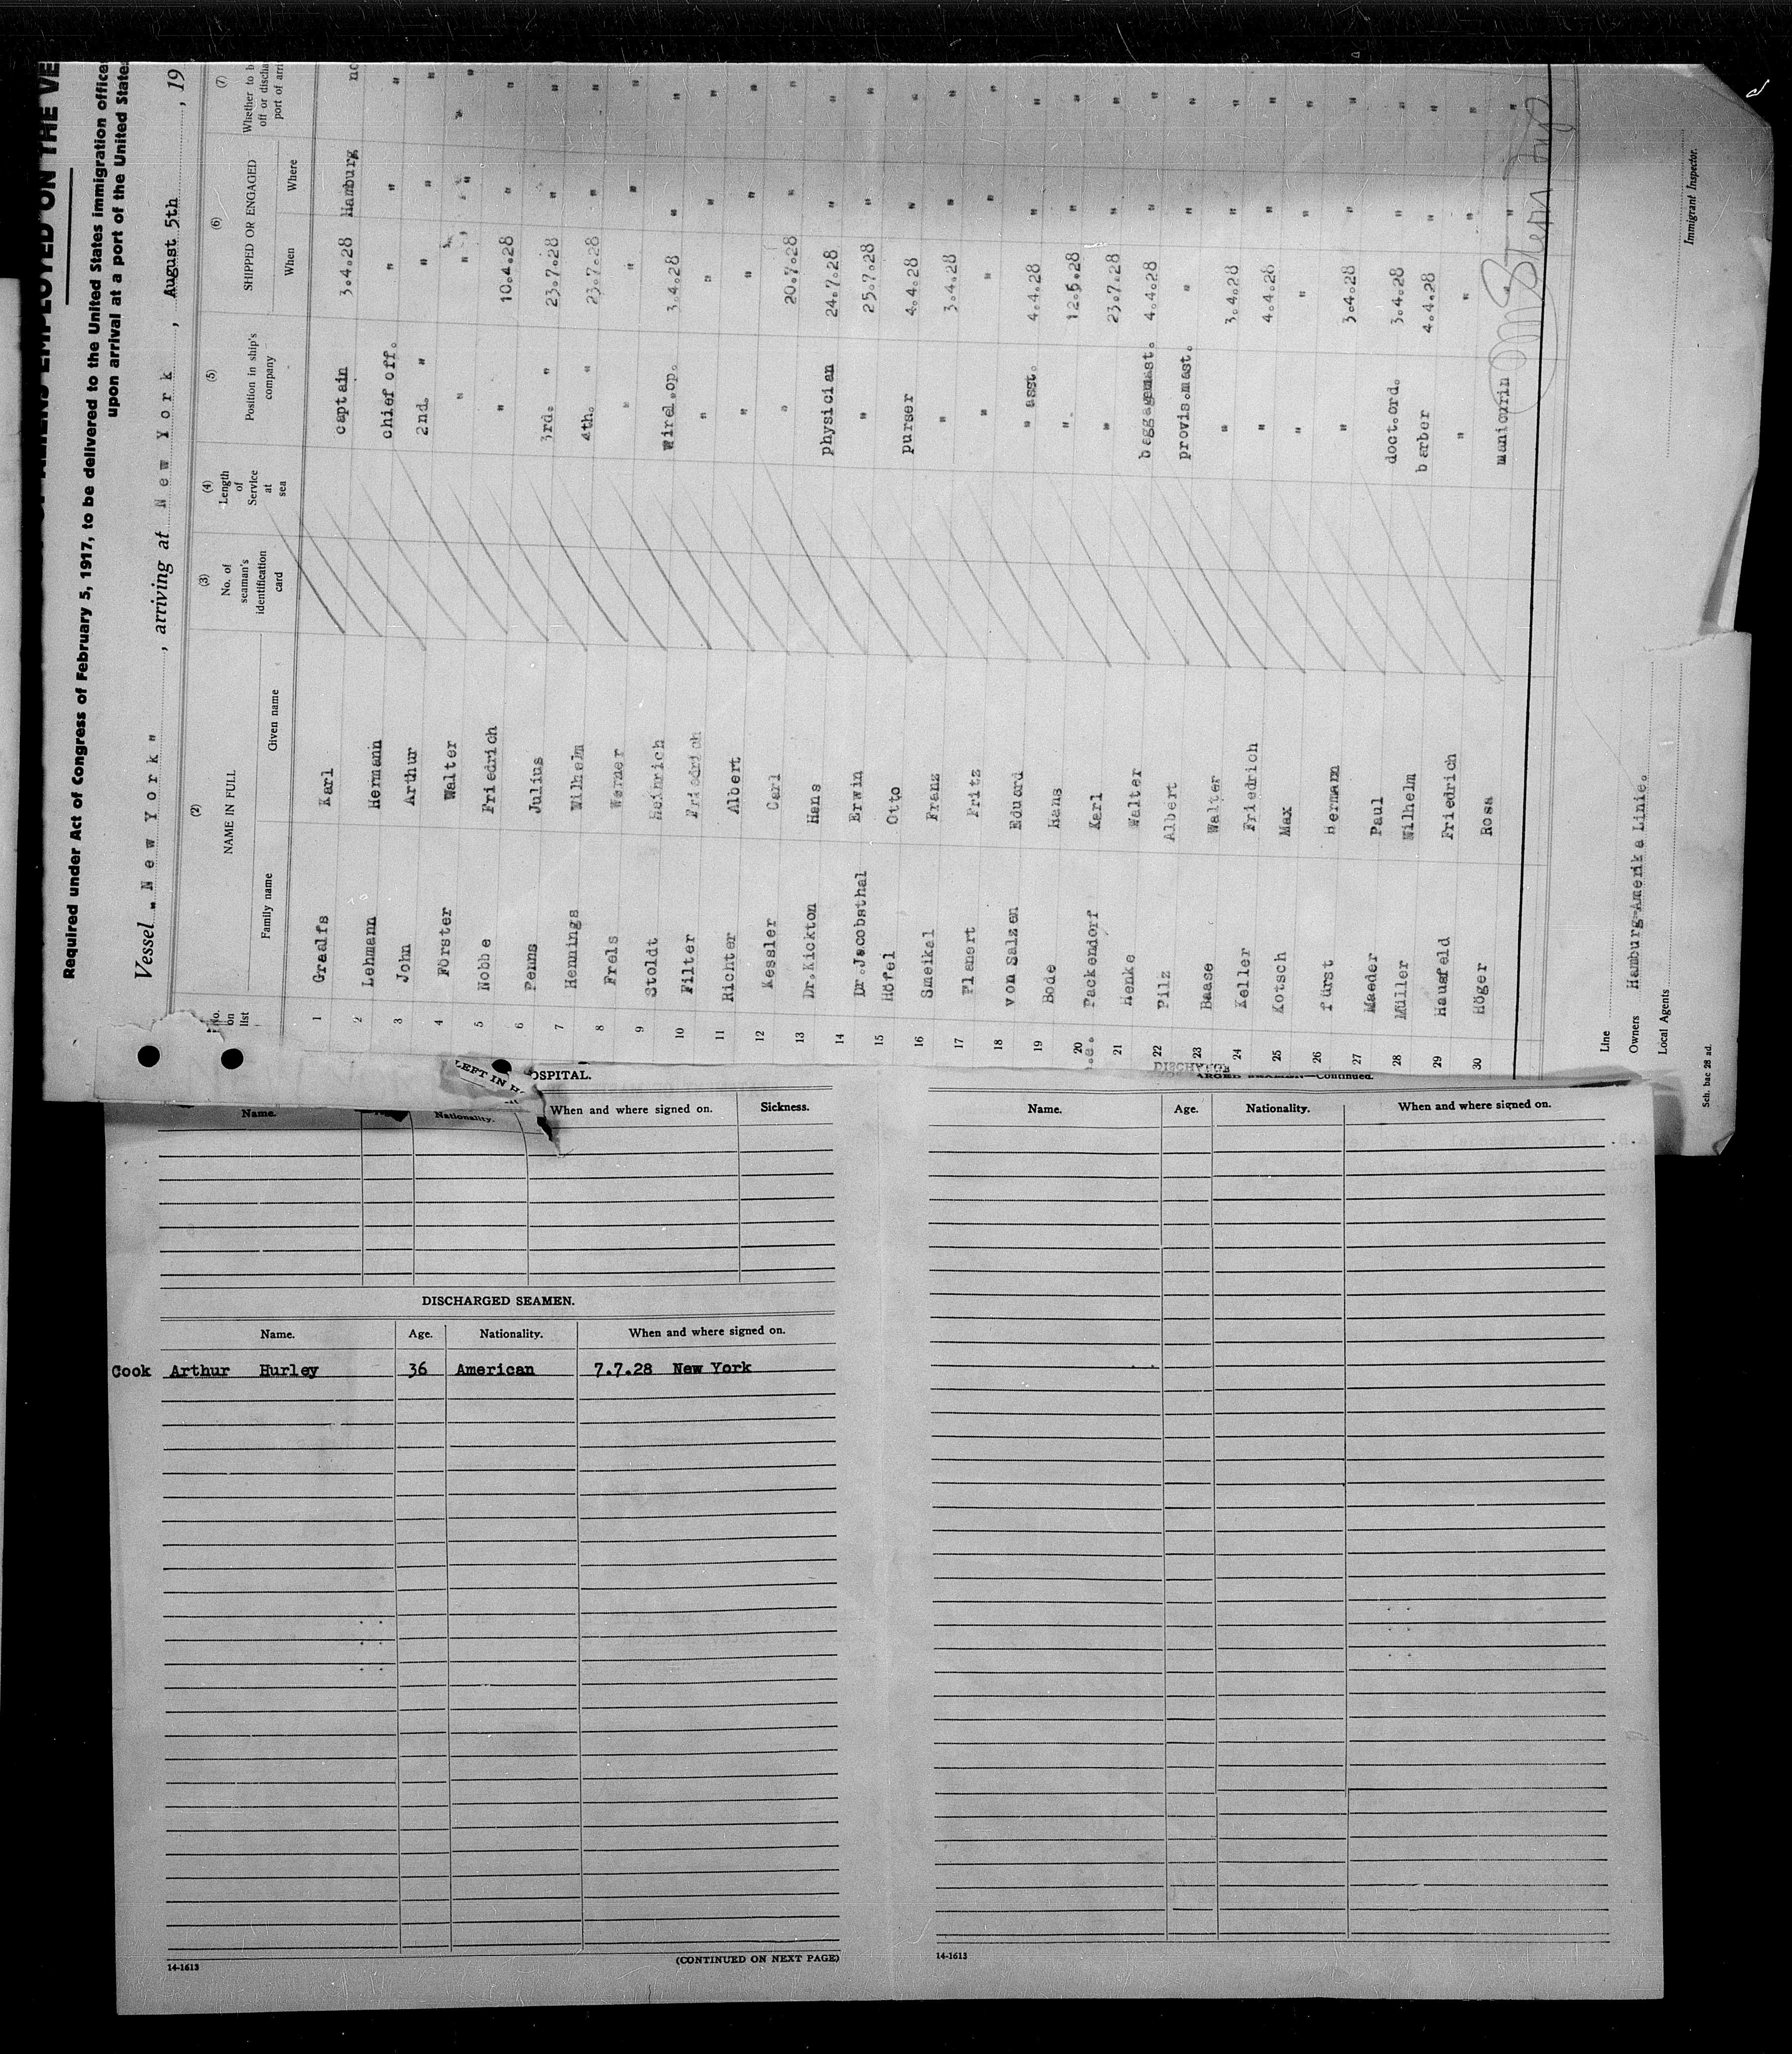 OF ALIENS EMPLOYED ON THE VE
Required under Act of Congress of February 5, 1917, to be delivered to the United States immigration office
upon arrival at a port of the United State
Vessel " New York " , arriving at New York , August 5th , 19
(2) (3) (4) (5) (6) (7)
No. on list NAME IN FULL No. of seaman's identification card Length of Service at sea Position in ship's company SHIPPED OR ENGAGED Whether to b off or discha port of arri
Family name Given name When Where
1 Graalfs Karl captain 3.4.28 Hamburg no
2 Lehmann Hermann chief off. " " "
3 John Arthur 2nd. " " " "
4 Förster Walter " " " "
5 Nobbe Friedrich " 10.4.28 " "
6 Penns Julius 3rd. " 23.7.28 " "
7 Hennings Wilhelm 4th. " 23.7.28 " "
8 Frels Werner " " " "
9 Stoldt Heinrich Wirel.op. 3.4.28 " "
10 Filter Friedrich " " " "
11 Richter Albert " " " "
12 Kessler Carl " 20.7.28 " "
13 Dr.Kickton Hans physician 24.7.28 " "
14 Dr.Jacobsthal Erwin " 25.7.28 " "
15 Höfel Otto purser 4.4.28 " "
16 Smeikal Franz " 3.4.28 " "
17 Planert Fritz " " " "
18 von Salzen Eduard " asst. 4.4.28 " "
19 Bode Hans " 12.5.28 " "
20 Packendorf Karl " 23.7.28 " "
21 Henke Walter baggagemast. 4.4.28 " "
22 Pilz Albert provis.mast. " " "
23 Baase Walter " 3.4.28 " "
24 Keller Friedrich " 4.4.28 " "
25 Kotsch Max " " " "
26 Fürst Hermann " 3.4.28 " "
27 Maeder Paul doct.ord. 3.4.28 " "
28 Müller Wilhelm barber 4.4.28 " "
29 Hausfeld Friedrich " " " "
30 Höger Rosa manicurin " " "
Line
Owners Hamburg-Amerika Linie.
Local Agents
Immigrant Inspector.
Sch. bac 28 ad.
LEFT IN HOSPITAL.
Name. Nationality. When and where signed on. Sickness.
DISCHARGED SEAMEN.
Name. Age. Nationality. When and where signed on.
Cook Arthur Hurley 36 American 7.7.28 New York
14-1613 (CONTINUED ON NEXT PAGE)
DISCHARGED SEAMEN—Continued.
Name. Age. Nationality. When and where signed on.
14-1613